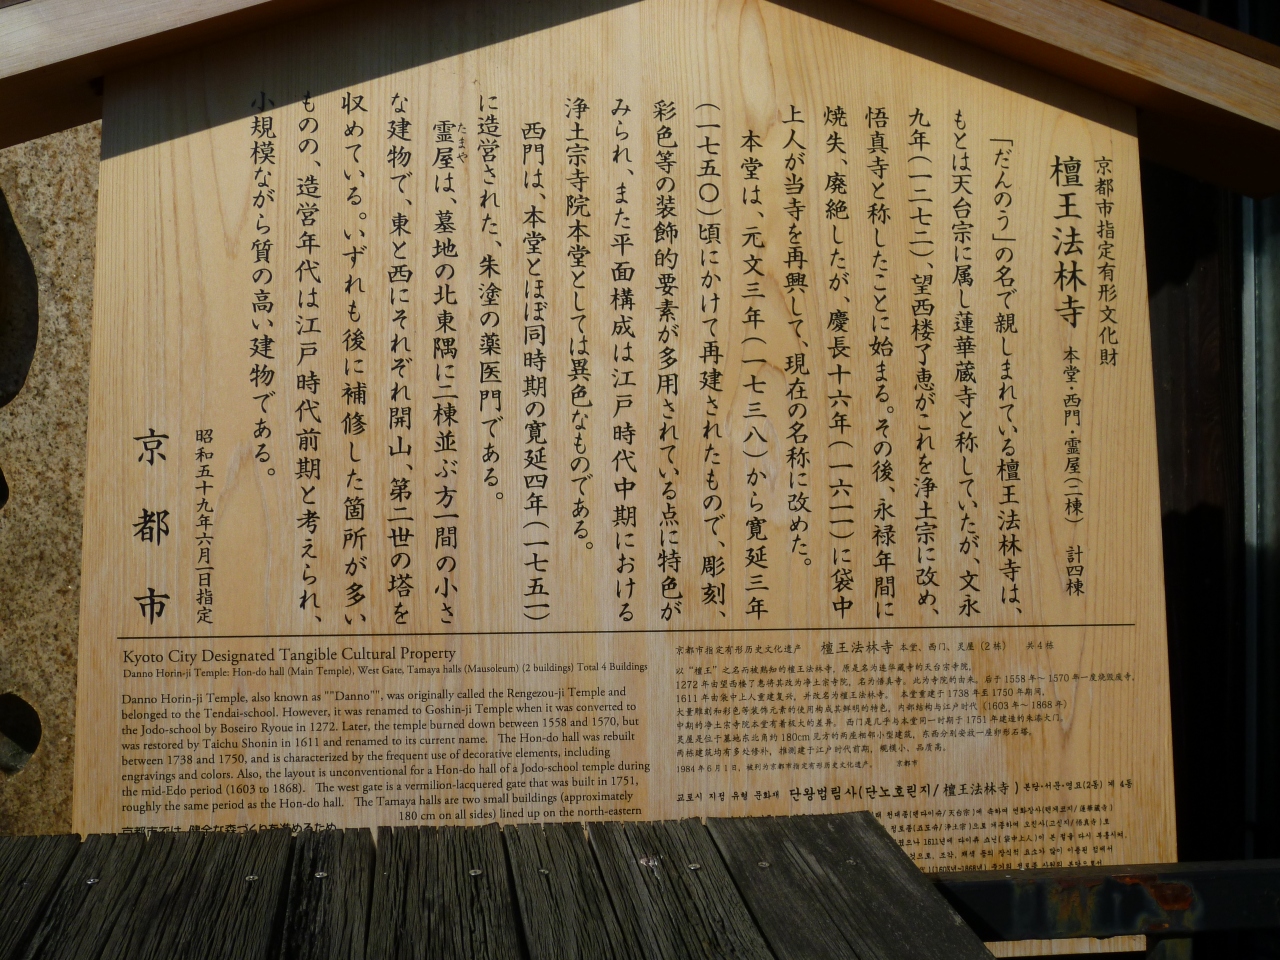 京都市指定有形文化財
檀王法林寺 本堂・西門・霊屋(二棟) 計四棟
「だんのう」の名で親しまれている檀王法林寺は、
もとは天台宗に属し蓮華蔵寺と称していたが、文永
九年(一二七二)、望西楼了恵がこれを浄土宗に改め、
悟真寺と称したことに始まる。その後、永禄年間に
焼失、廃絶したが、慶長十六年(一六一一)に袋中
上人が当寺を再興して、現在の名称に改めた。
本堂は、元文三年(一七三八)から寛延三年
(一七五〇)頃にかけて再建されたもので、彫刻、
彩色等の装飾的要素が多用されている点に特色が
みられ、また平面構成は江戸時代中期における
浄土宗寺院本堂としては異色なものである。
西門は、本堂とほぼ同時期の寛延四年(一七五一)
に造営された、朱塗の薬医門である。
霊屋は、墓地の北東隅に二棟並ぶ方一間の小さ
たまや
な建物で、東と西にそれぞれ開山、第二世の塔を
収めている。いずれも後に補修した箇所が多い
ものの、造営年代は江戸時代前期と考えられ、
小規模ながら質の高い建物である。
昭和五十九年六月一日指定
京都市
Kyoto City Designated Tangible Cultural Property
Danno Horin-ji Temple: Hon-do hall (Main Temple), West Gate, Tamaya halls (Mausoleum) (2 buildings) Total 4 Buildings
Danno Horin-ji Temple, also known as ""Danno"", was originally called the Rengezou-ji Temple and
belonged to the Tendai-school. However, it was renamed to Goshin-ji Temple when it was converted to
the Jodo-school by Boseiro Ryoue in 1272. Later, the temple burned down between 1558 and 1570, but
was restored by Taichu Shonin in 1611 and renamed to its current name. The Hon-do hall was rebuilt
between 1738 and 1750, and is characterized by the frequent use of decorative elements, including
engravings and colors. Also, the layout is unconventional for a Hon-do hall of a Jodo-school temple during
the mid-Edo period (1603 to 1868). The west gate is a vermilion-lacquered gate that was built in 1751,
roughly the same period as the Hon-do hall. The Tamaya halls are two small buildings (approximately
180 cm on all sides) lined up on the north-eastern
京都市では、健全な森づくりを進めるため
京都市指定有形历史文化遗产 檀王法林寺 本堂、西门、灵屋(2栋) 共4栋
以“檀王”之名而被熟知的檀王法林寺，原是名为莲华藏寺的天台宗寺院，
1272年由望西楼了惠将其改为净土宗寺院，名为悟真寺。此为寺院的由来。后于1558年～1570年一度烧毁废寺，
1611年由袋中上人重建复兴，并改名为檀王法林寺。 本堂重建于1738年至1750年期间，
大量雕刻和彩色等装饰元素的使用构成其鲜明的特色，内部结构与江户时代(1603年～1868年)
中期的净土宗寺院本堂有着极大的差异。 西门是几乎与本堂同一时期于1751年建造的朱漆大门。
灵屋是位于墓地东北角约180cm见方的两座相邻小型建筑，东西分别安放一座卵形石塔。
两栋建筑均有多处修补，推测建于江户时代前期，规模小、品质高。
1984年6月1日，被列为京都市指定有形历史文化遗产。 京都市
교토시 지정 유형 문화재 단왕법림사(단노호린지/檀王法林寺) 본당·서문·영묘(2동) 계 4동